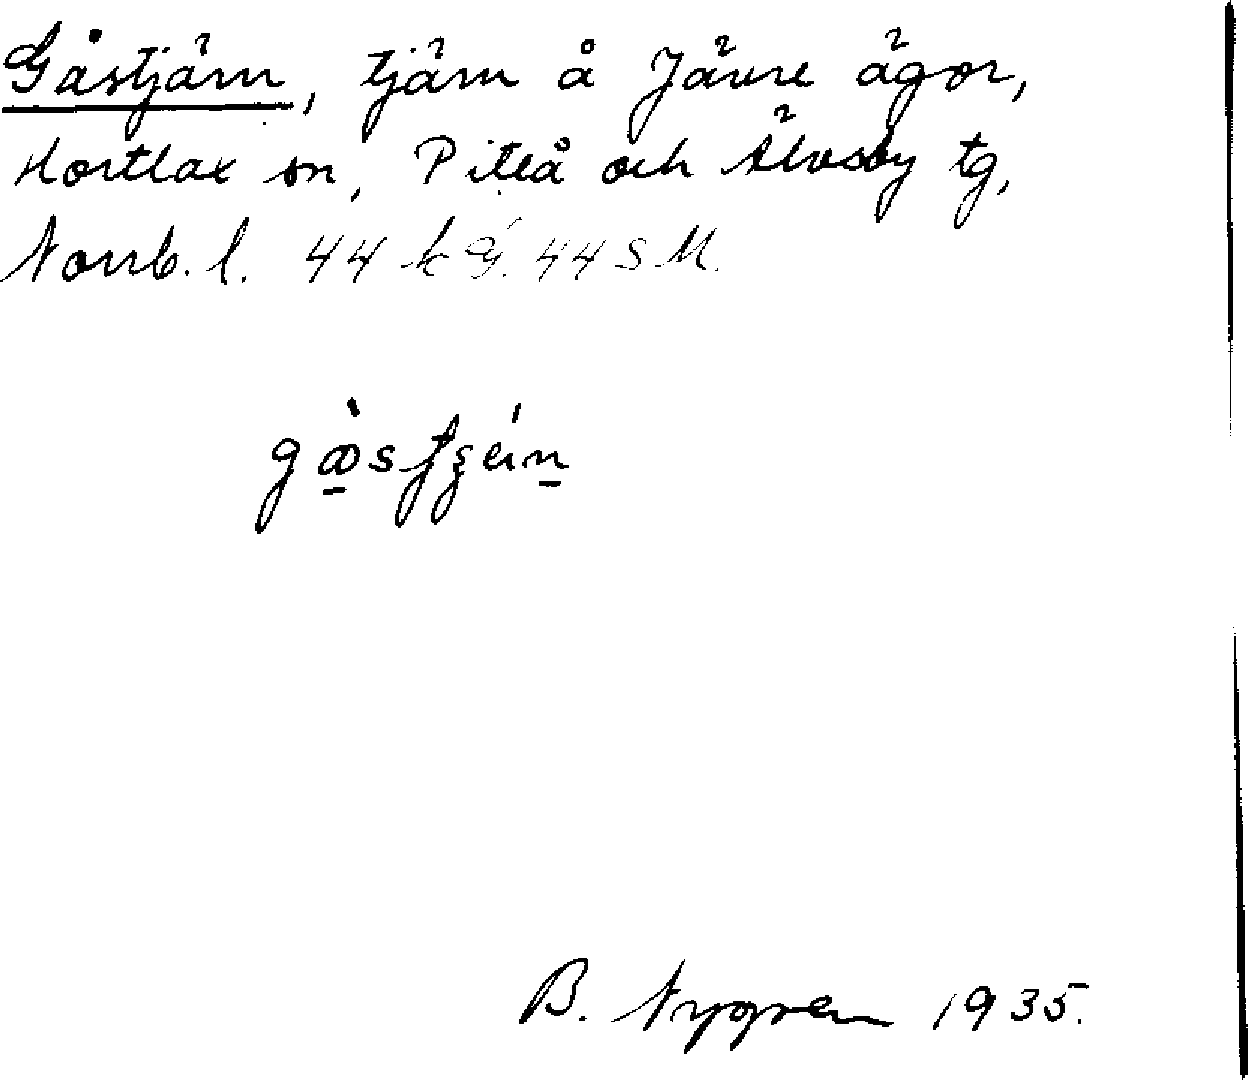 Gåstjärn, tjärn å Jävre ägor,
Hortlax sn, Piteå och Älvsby tg,
Norrb. l. 44 k G. 44 S M.
B. Nygren 1935.